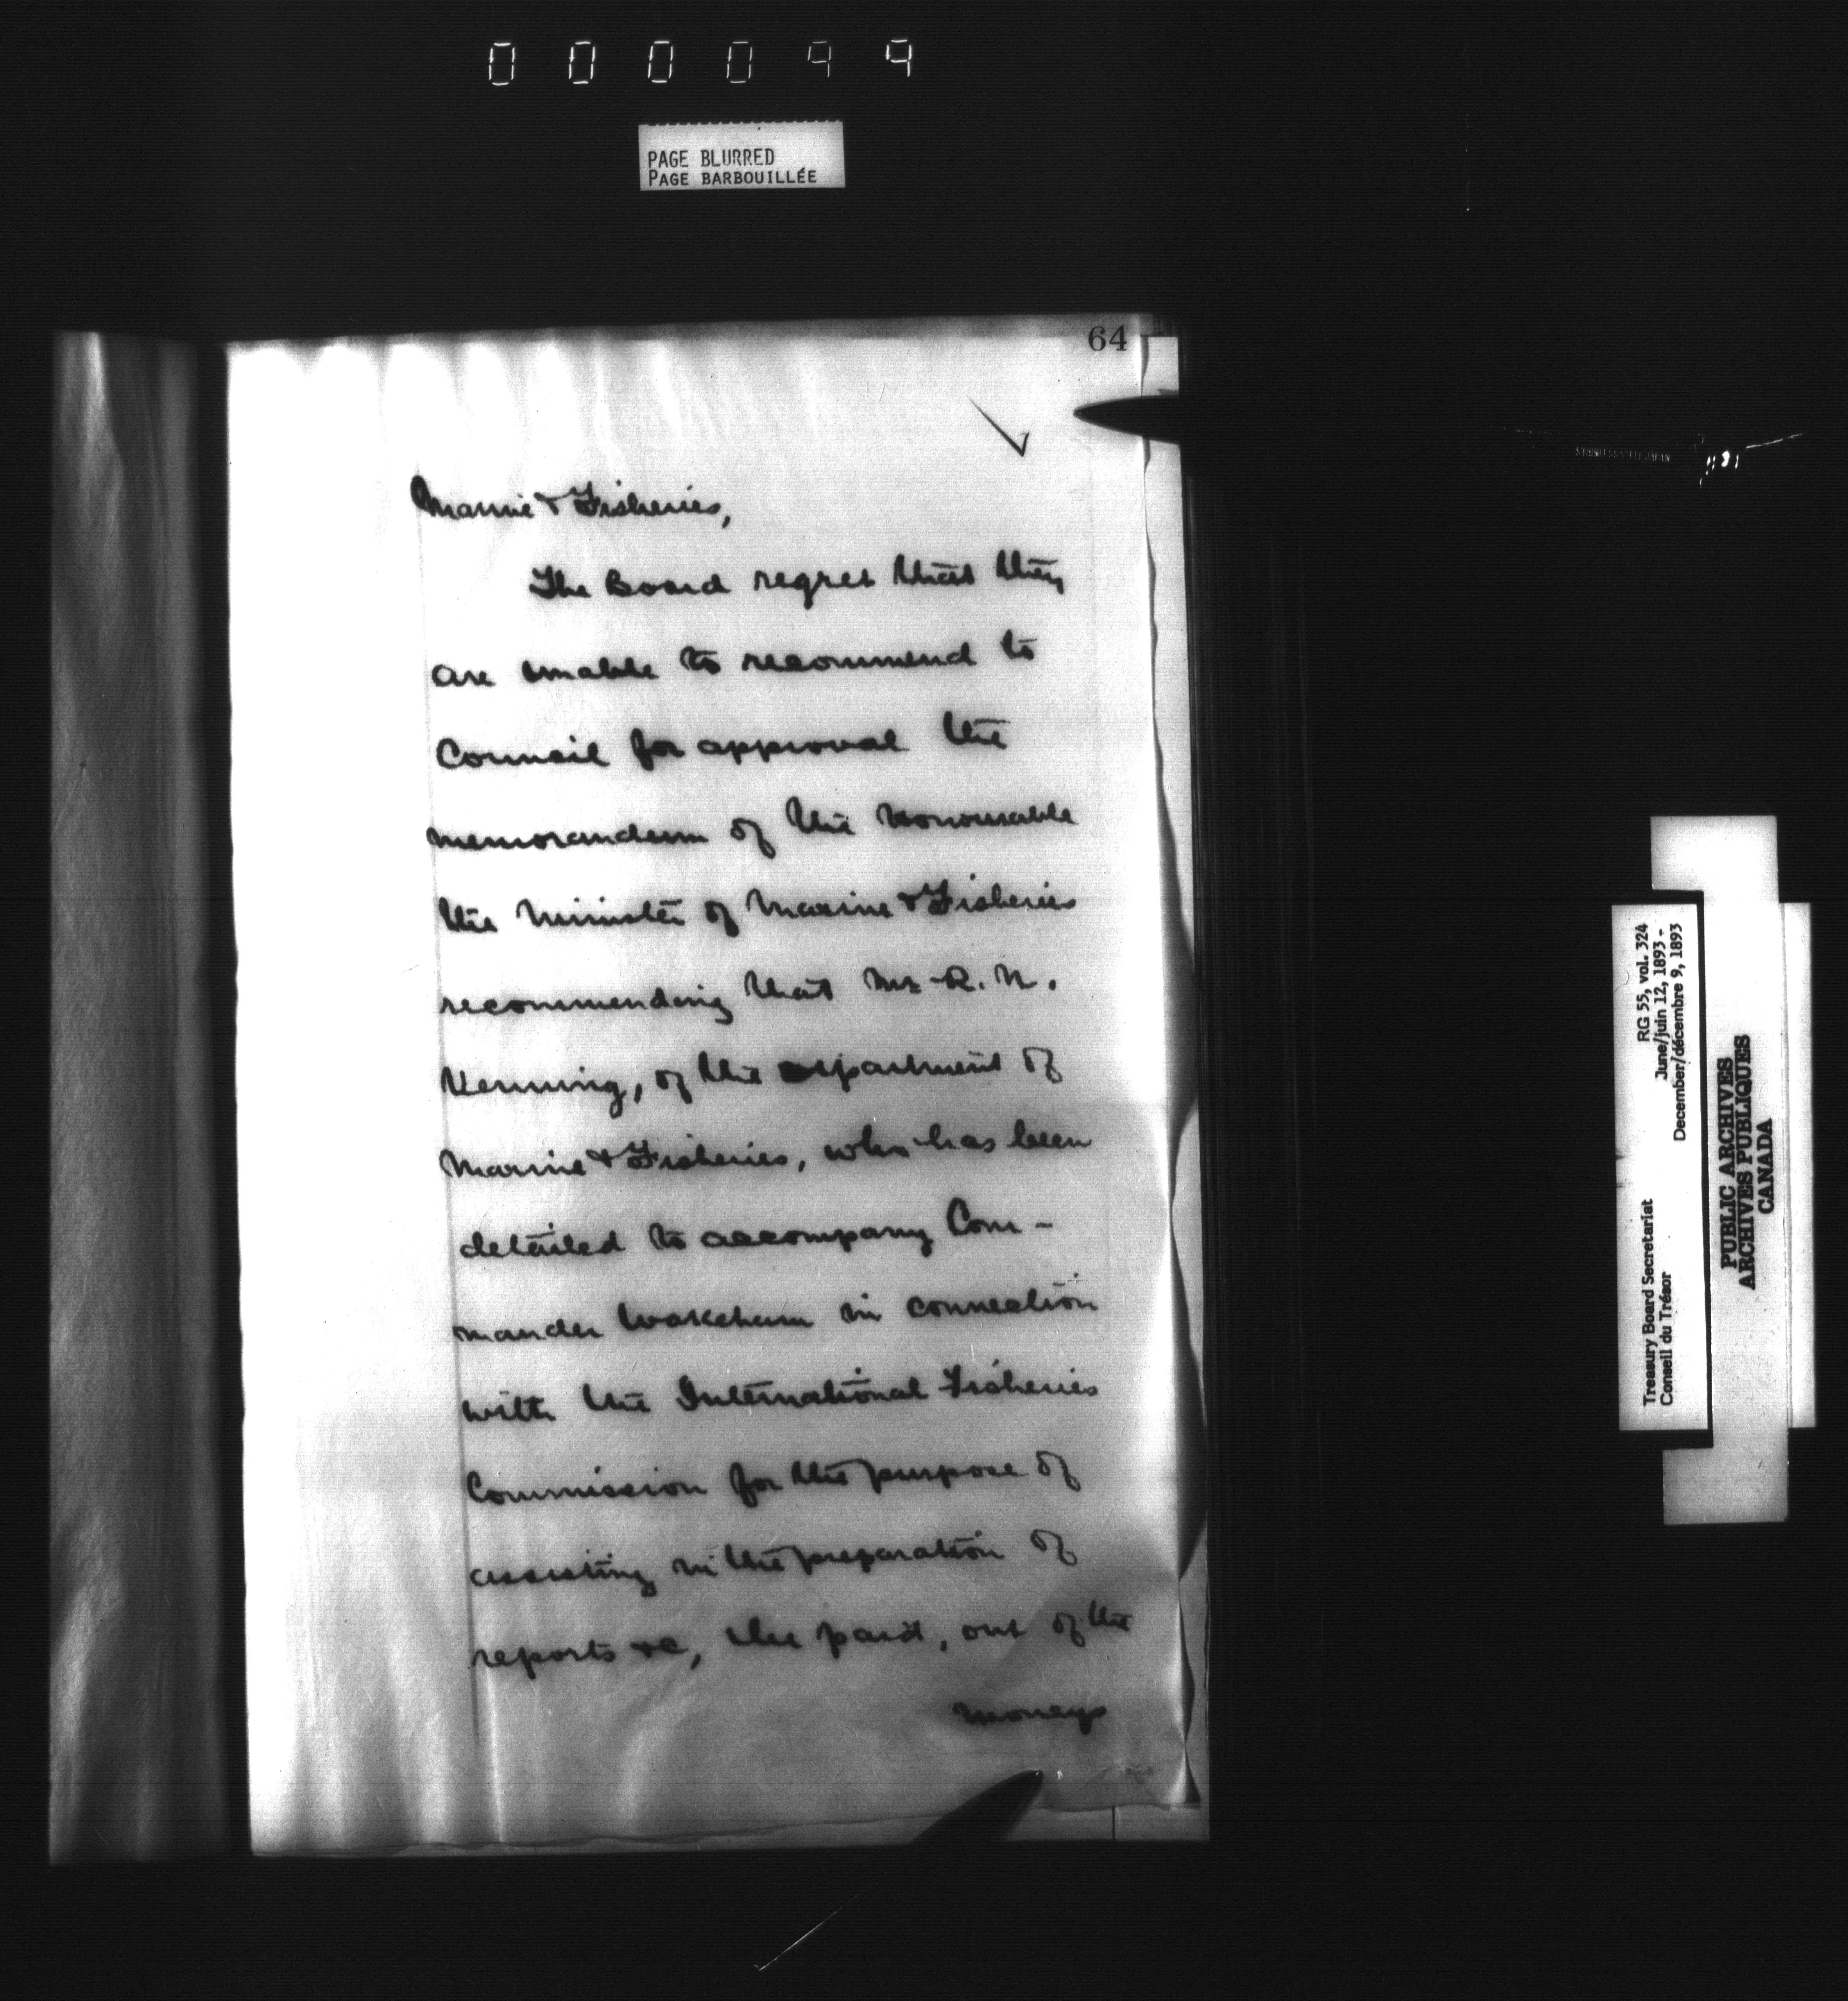 000099
PAGE BLURRED
PAGE BARBOUILLÉE
64
Marine & Fisheries,
The Board regret that they
are unable to recommend to
Council for approval the
memorandum of the Honourable
the Minister of Marine & Fisheries
recommending that Mr. R. N.
Venning, of the Department of
Marine & Fisheries, who has been
detailed to accompany Com-
mander Wakeham in connection
with the International Fisheries
Commission for the purpose of
assisting in the preparation of
reports &c, be paid, out of the
moneys
Treasury Board Secretariat RG 55, vol. 324
Conseil du Trésor June/juin 12, 1893 -
December/décembre 9, 1893
PUBLIC ARCHIVES
ARCHIVES PUBLIQUES
CANADA